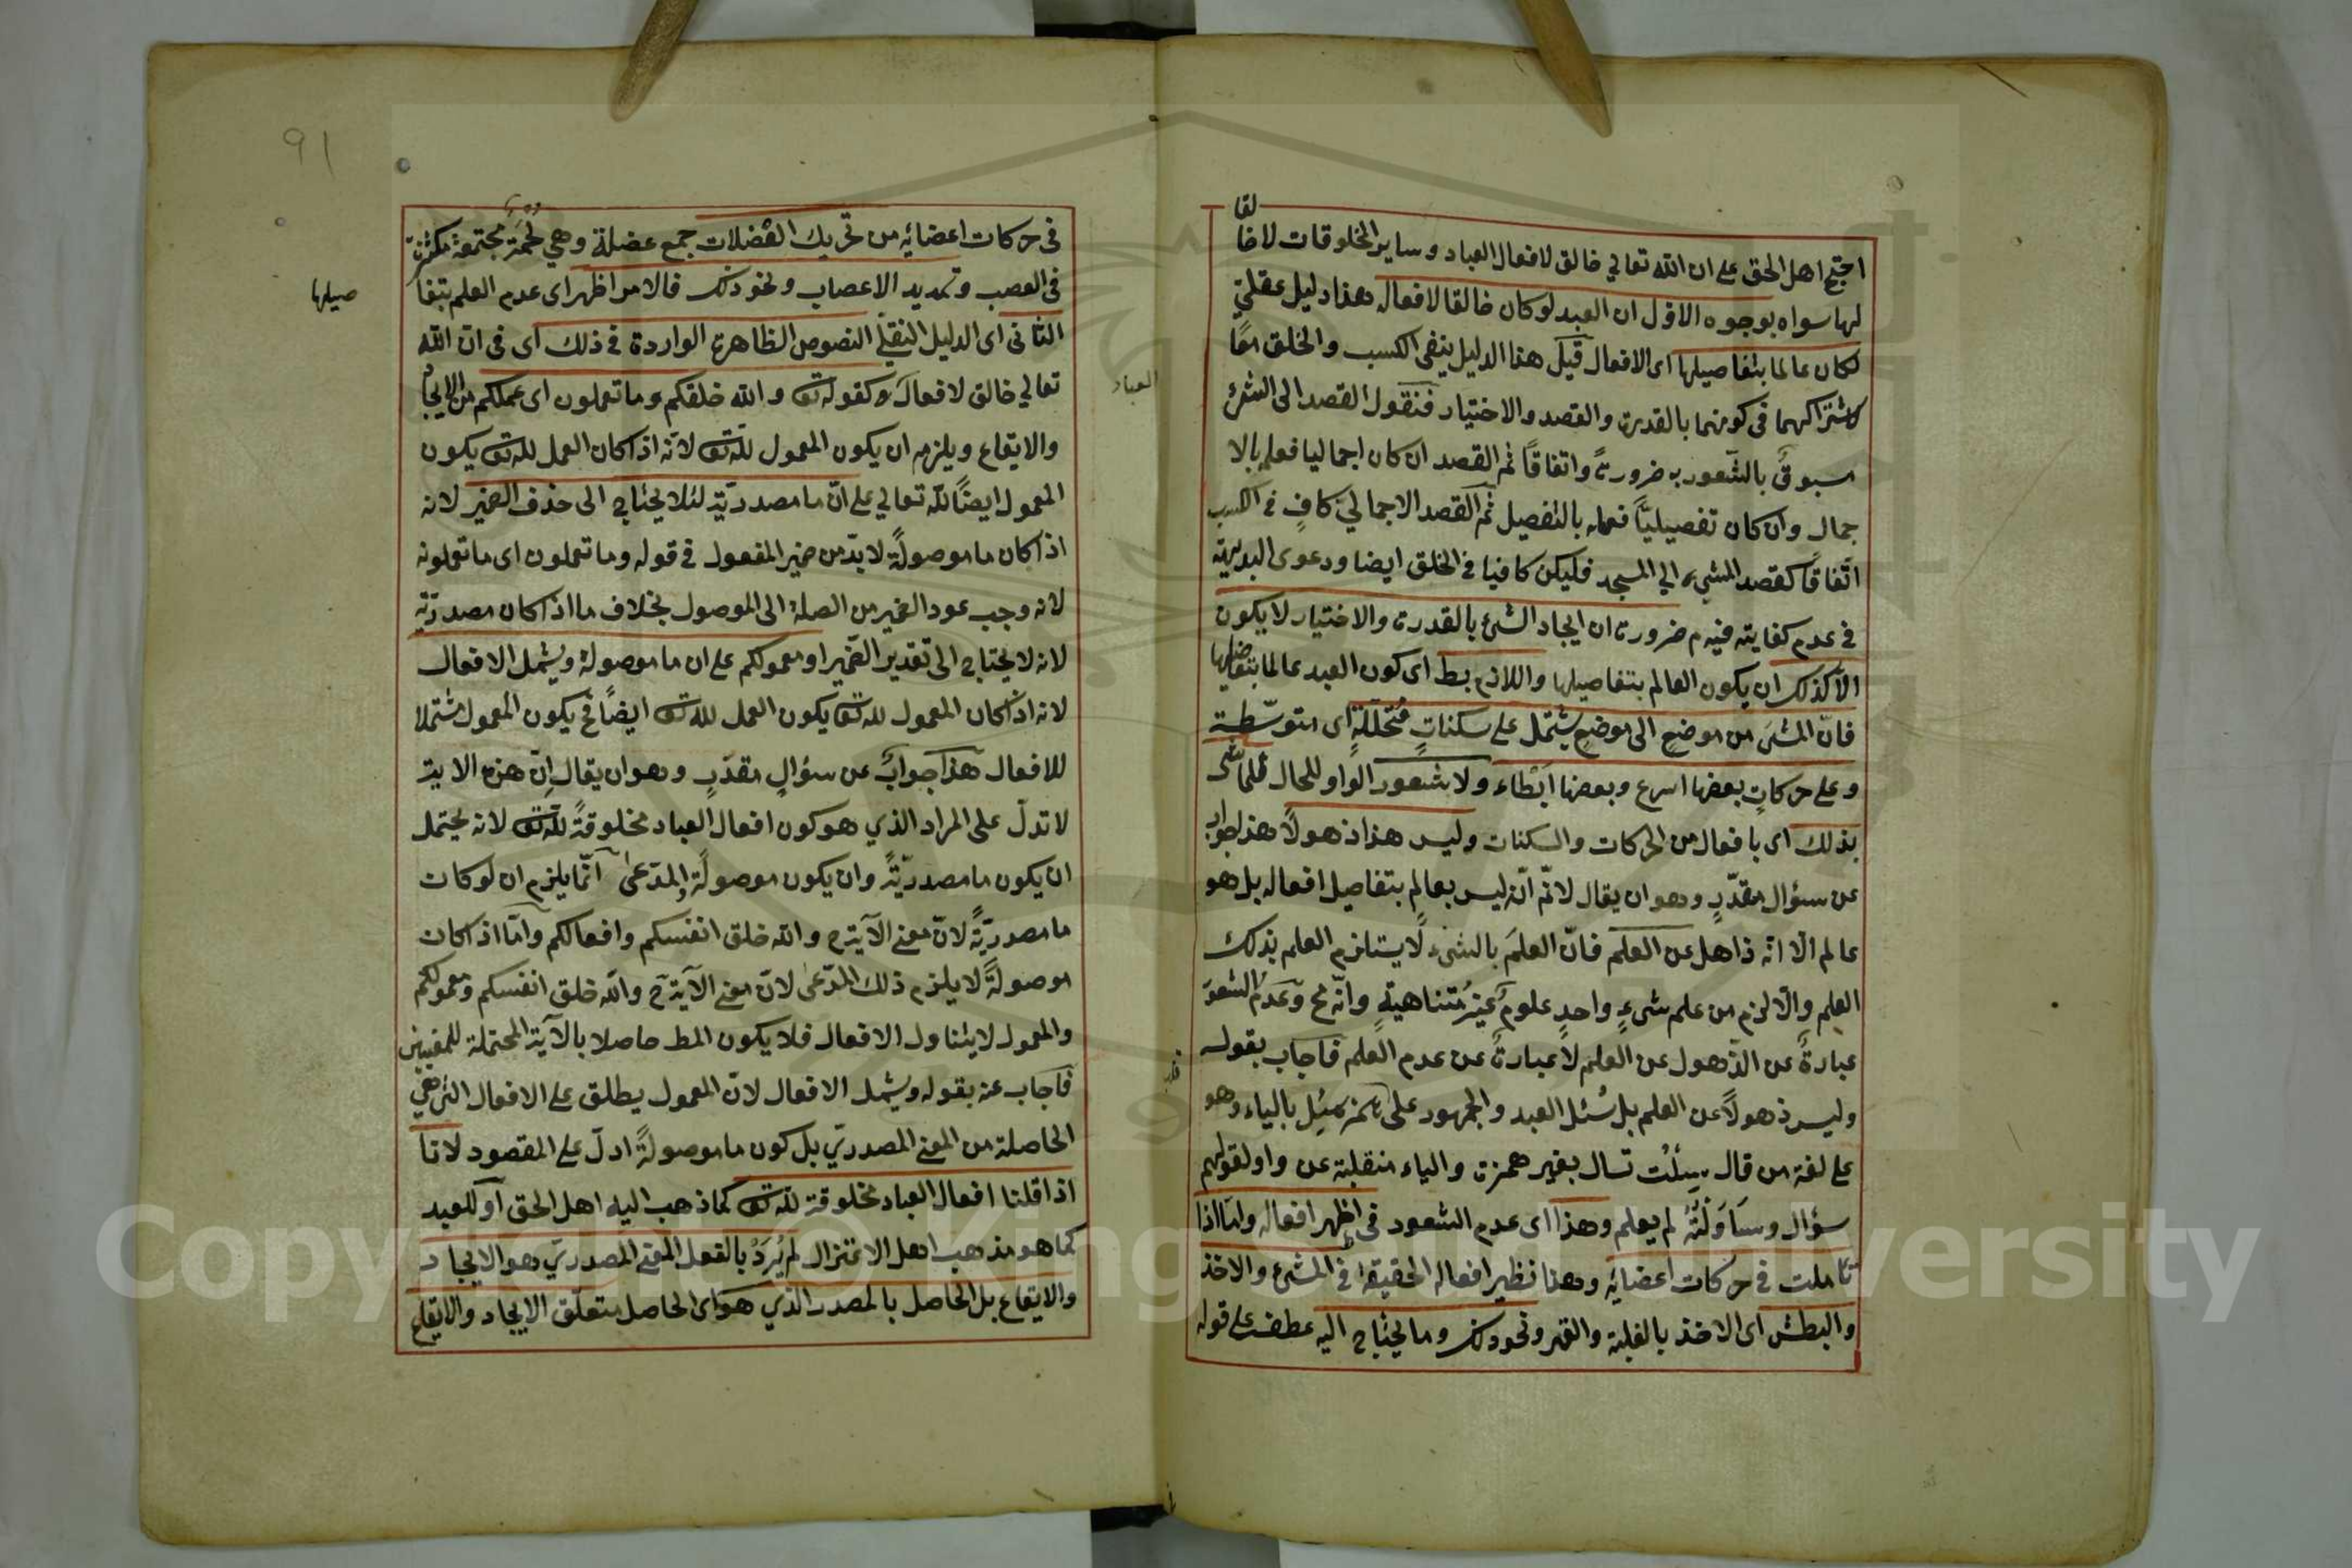 لقا
احتج اهل الحق على ان الله تعالى خالق لافعال العباد وساير المخلوقات لا خا
لها سواه بوجوه الاول ان العبد لو كان خالقا لافعاله هذا دليل عقلىّ
لكان عالما بتفاصيلها اى الافعال قيل هذا الدليل ينفى الكسب والخلق معًا
لاشتراكهما فى كونهما بالقدرة والقصد والاختيار فنقول القصد الى الشئ
مسبوق بالشعور به ضرورةً واتفاقًا ثم القصد ان كان اجماليا فعلم بالا
جمال وان كان تفصيليًّا فعلم بالتفصيل ثم القصد الاجمالىّ كافٍ فى الكسب
اتفاقًا كقصد المشى الى المسجد فليكن كافيا فى الخلق ايضا ودعوى البديهة
فى عدم كفايته فيه م ضرورة ان ايجاد الشئ بالقدرة والاختيار لا يكون
الا كذلك ان يكون العالم بتفاصيلها واللازم بط اى كون العبد عالما بتفاصيلها
فانّ المشىَ من موضع الى موضع يشتمل على سكناتٍ متخلّلةٍ اى متوسّطة
وعلى حركاتٍ بعضها اسرع وبعضها ابطاء ولا شعور الواو للحال للماشى
بذلك اى بافعال من الحركات والسكنات وليس هذا ذهولاً هذا جواب
عن سؤال مقدّرٍ وهو ان يقال لانّم انّه ليس بعالم بتفاصيل افعاله بل هو
عالم الّا انّه ذاهل عن العلم فانّ العلمَ بالشئ لا يستلزم العلم بذلك
العلم والّا لزم من علم شىءٍ واحدٍ علومٌ غيرُ متناهيةٍ وانّه مح وعدمُ الشعور
عبارةً عن الذهول عن العلم لا عبارةً عن عدم العلم فاجاب بقوله
وليس ذهولاً عن العلم بل سُئل العبد والجمهور على همز سُئِل بالياء وهو
على لغة من قال سِلْتَ تسال بغير همزة والياء منقلبة عن واو لقولهم
سؤال وساوَلْتُهُ لم يعلم وهذا اى عدم الشعور فى اظهر افعاله وامّا اذا
تاملت فى حركات اعضائه وهذا نظير افعاله الحقيقة فى المشى والاخذ
والبطش اى الاخذ بالغلبة والقهر ونحو ذلك وما يحتاج اليه عطف على قوله
العباد
91
فى حركات اعضائه من تحريك العضلات جمع عضلة وهى لحمة مجتمعة مكتنزة
فى العصب وتمديد الاعصاب ونحو ذلك فالامر اظهر اى عدم العلم بتفا
صيلها
الثانى اى الدليل النقلىّ النصوص الظاهرة الواردة فى ذلك اى فى ان الله
تعالى خالق لافعال كقوله تع والله خلقكم وما تعملون اى عملكم من الايجاد
والايقاع ويلزم ان يكون المعمول لله تع لانّه اذا كان العمل لله تع يكون
المعمول ايضًا لله تعالى على انّ ما مصدريّة لئلا يحتاج الى حذف الضمير لانه
اذا كان ما موصولةً لا بدّ من ضمير المفعول فى قوله وما تعملون اى ما تعملونه
لانه وجب عود الضمير من الصلة الى الموصول بخلاف ما اذا كان مصدريّة
لانه لا يحتاج الى تقدير الضمير او معمولكم على ان ما موصولة ويشمل الافعال
لانه اذا كان المعمول لله تع يكون العمل لله تع ايضًا فح يكون المعمول مشتملا
للافعال هذا جوابٌ عن سؤالٍ مقدّرٍ وهو ان يقال انّ هذه الاية
لا تدلّ على المراد الذي هو كون افعال العباد مخلوقةً لله تع لانه يحتمل
ان يكون ما مصدريّةً وان يكون موصولةً والمدّعى انّما يلزم ان لو كان
ما مصدريّةً لانّ معنى الآية ح والله خلق انفسكم وافعالكم وامّا اذا كان
موصولةً لا يلزم ذلك المدّعى لانّ معنى الآية ح والله خلق انفسكم ومعمولكم
والمعمول لا يتناول الافعال فلا يكون المط حاصلا بالآية المحتملة للمعنيين
فاجاب عنه بقوله ويشمل الافعال لانّ المعمول يطلق على الافعال التى هى
الحاصلة من المعنى المصدرىّ بل كون ما موصولةً ادلّ على المقصود لانا
اذا قلنا افعال العباد مخلوقة لله تع كما ذهب اليه اهل الحق او للعبد
كما هو مذهب اهل الاعتزال لم يُرَدْ بالفعل المعنى المصدرىّ هو الايجاد
والايقاع بل الحاصل بالمصدر الذي هو اى الحاصل متعلّق الايجاد والايقاع
Copyright © King Saud University